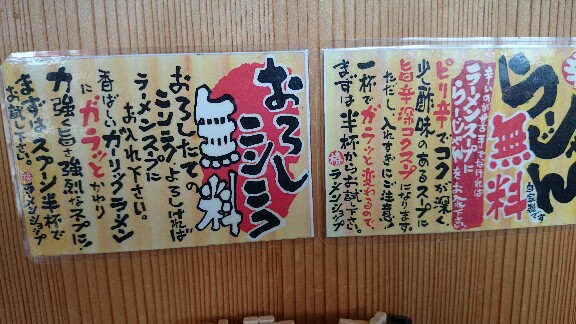 らーじゃん
無料
自家製です
辛いのが苦手でなければ
ラーメンスープに
らーじゃんをお入れ下さい。
ピリ辛でコクが深く、
少し酸味のあるスープに
旨辛深コクスープになります。
ただし、入れすぎにご注意!
一杯でガラッと変わるので、
まずは半杯からお試し下さい。
ラーメンショップ
おろしニンニク
無料
おろしたての
ニンニクよろしければ
ラーメンスープに
お入れ下さい。
香ばしいガーリックラーメン
にガラッとかわり
力強く旨さ強烈なスープに!
まずはスプーン半杯で
お試し下さい。
ラーメンショップ